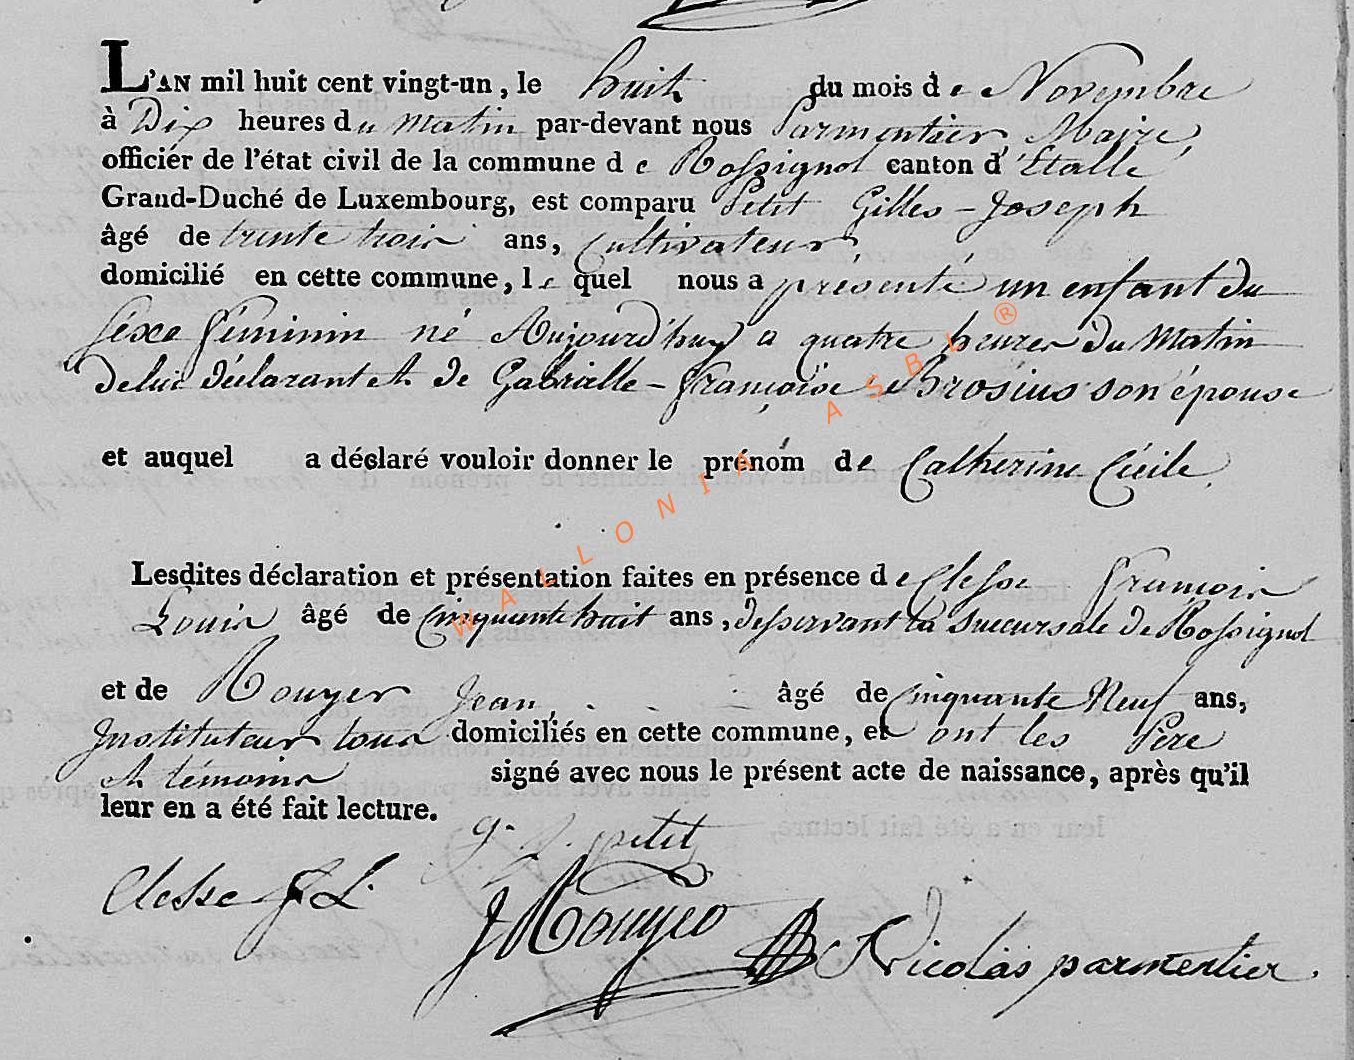 L'AN mil huit cent vingt-un, le huit du mois de Novembre
à Dix heures du matin par-devant nous Parmentier, Maire,
officier de l'état civil de la commune de Rossignol canton d'Etalle
Grand-Duché de Luxembourg, est comparu Petit Gilles-Joseph
âgé de trente trois ans, Cultivateur,
domicilié en cette commune, lequel nous a présenté un enfant du
séxe féminin né Aujourd'huy a quatre heures du Matin
de lui déclarant et de Gabrielle-françoise Brosius son épouse
et auquel a déclaré vouloir donner le prénom de Catherine Cécile.
Lesdites déclaration et présentation faites en présence de Clesse françois
Louis âgé de Cinquante huit ans, desservant la Succursale de Rossignol
et de Rouyer Jean, âgé de Cinquante Neuf ans,
Instituteur tous domiciliés en cette commune, et ont les Père
et témoins signé avec nous le présent acte de naissance, après qu'il
leur en a été fait lecture.
g. J. petit
Clesse f L.
J Rouyer
Nicolas parmentier.
WALLONIA ASBL ®